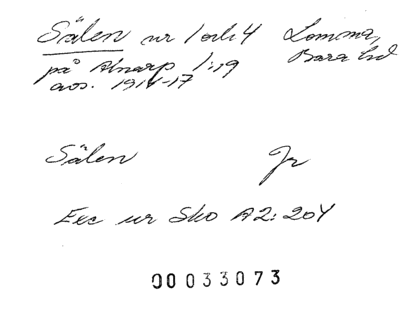 Sälen nr 1 och 4 Lomma,
på Alnarp 1:19 Bara hd
avs. 1914-17
Sälen Jr
Exc ur Sko A2:204
00033073